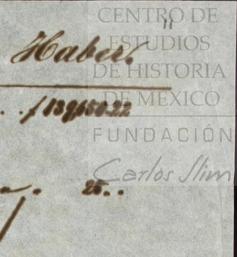 11
Haber.
CENTRO DE
ESTUDIOS
DE HISTORIA
DE MÉXICO
FUNDACIÓN
Carlos Slim
25..